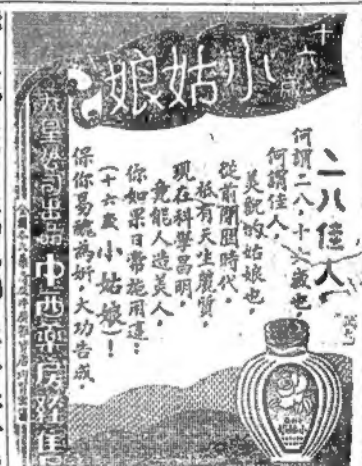 十六歲
小姑娘
二八佳人
何謂二八，十六歲也，
何謂佳人，
美貌的姑娘也，
從前閨閣時代，
祇有天生麗質，
現在科學昌明，
竟能人造美人，
你如果日常施用這：
（十六歲小姑娘）！
保你易醜為妍，大功告成
九星公司出品 中西藥房經售